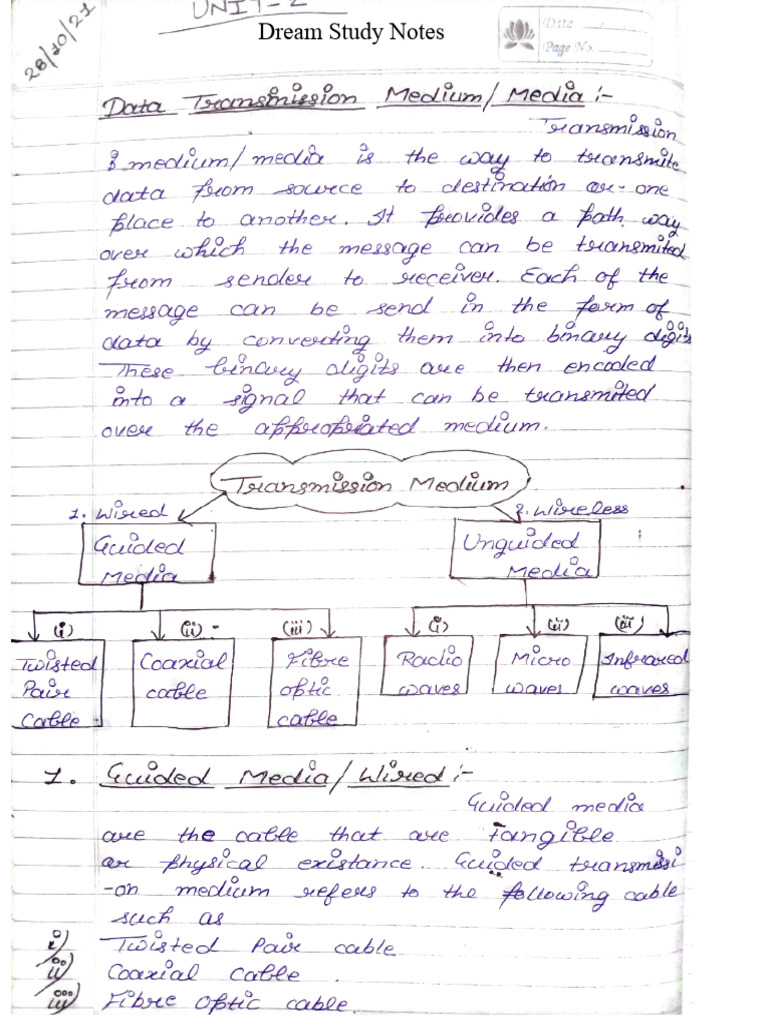 UNIT-2
Dream Study Notes
Date
Page No.
28/10/21
Data Transmission Medium/Media :-
Transmission
medium/media is the way to transmite
data from source to destination or one
place to another. It provides a path way
over which the message can be transmited
from sender to receiver. Each of the
message can be send in the form of
data by converting them into binary digits
These binary digits are then encoded
into a signal that can be transmited
over the appropriated medium.
Transmission Medium
1. Wired
2. Wireless
Guided
Media
Unguided
Media
(i) (ii) (iii) (i) (ii) (iii)
Twisted
Pair
Cable
Coaxial
cable
Fibre
optic
cable
Radio
waves
Micro
waves
Infrared
waves
1. Guided Media/Wired :-
Guided media
are the cable that are Tangible
or physical existance. Guided transmissi
-on medium refers to the following cable
such as
i) Twisted Pair cable
ii) Coaxial Cable.
iii) Fibre Optic cable.